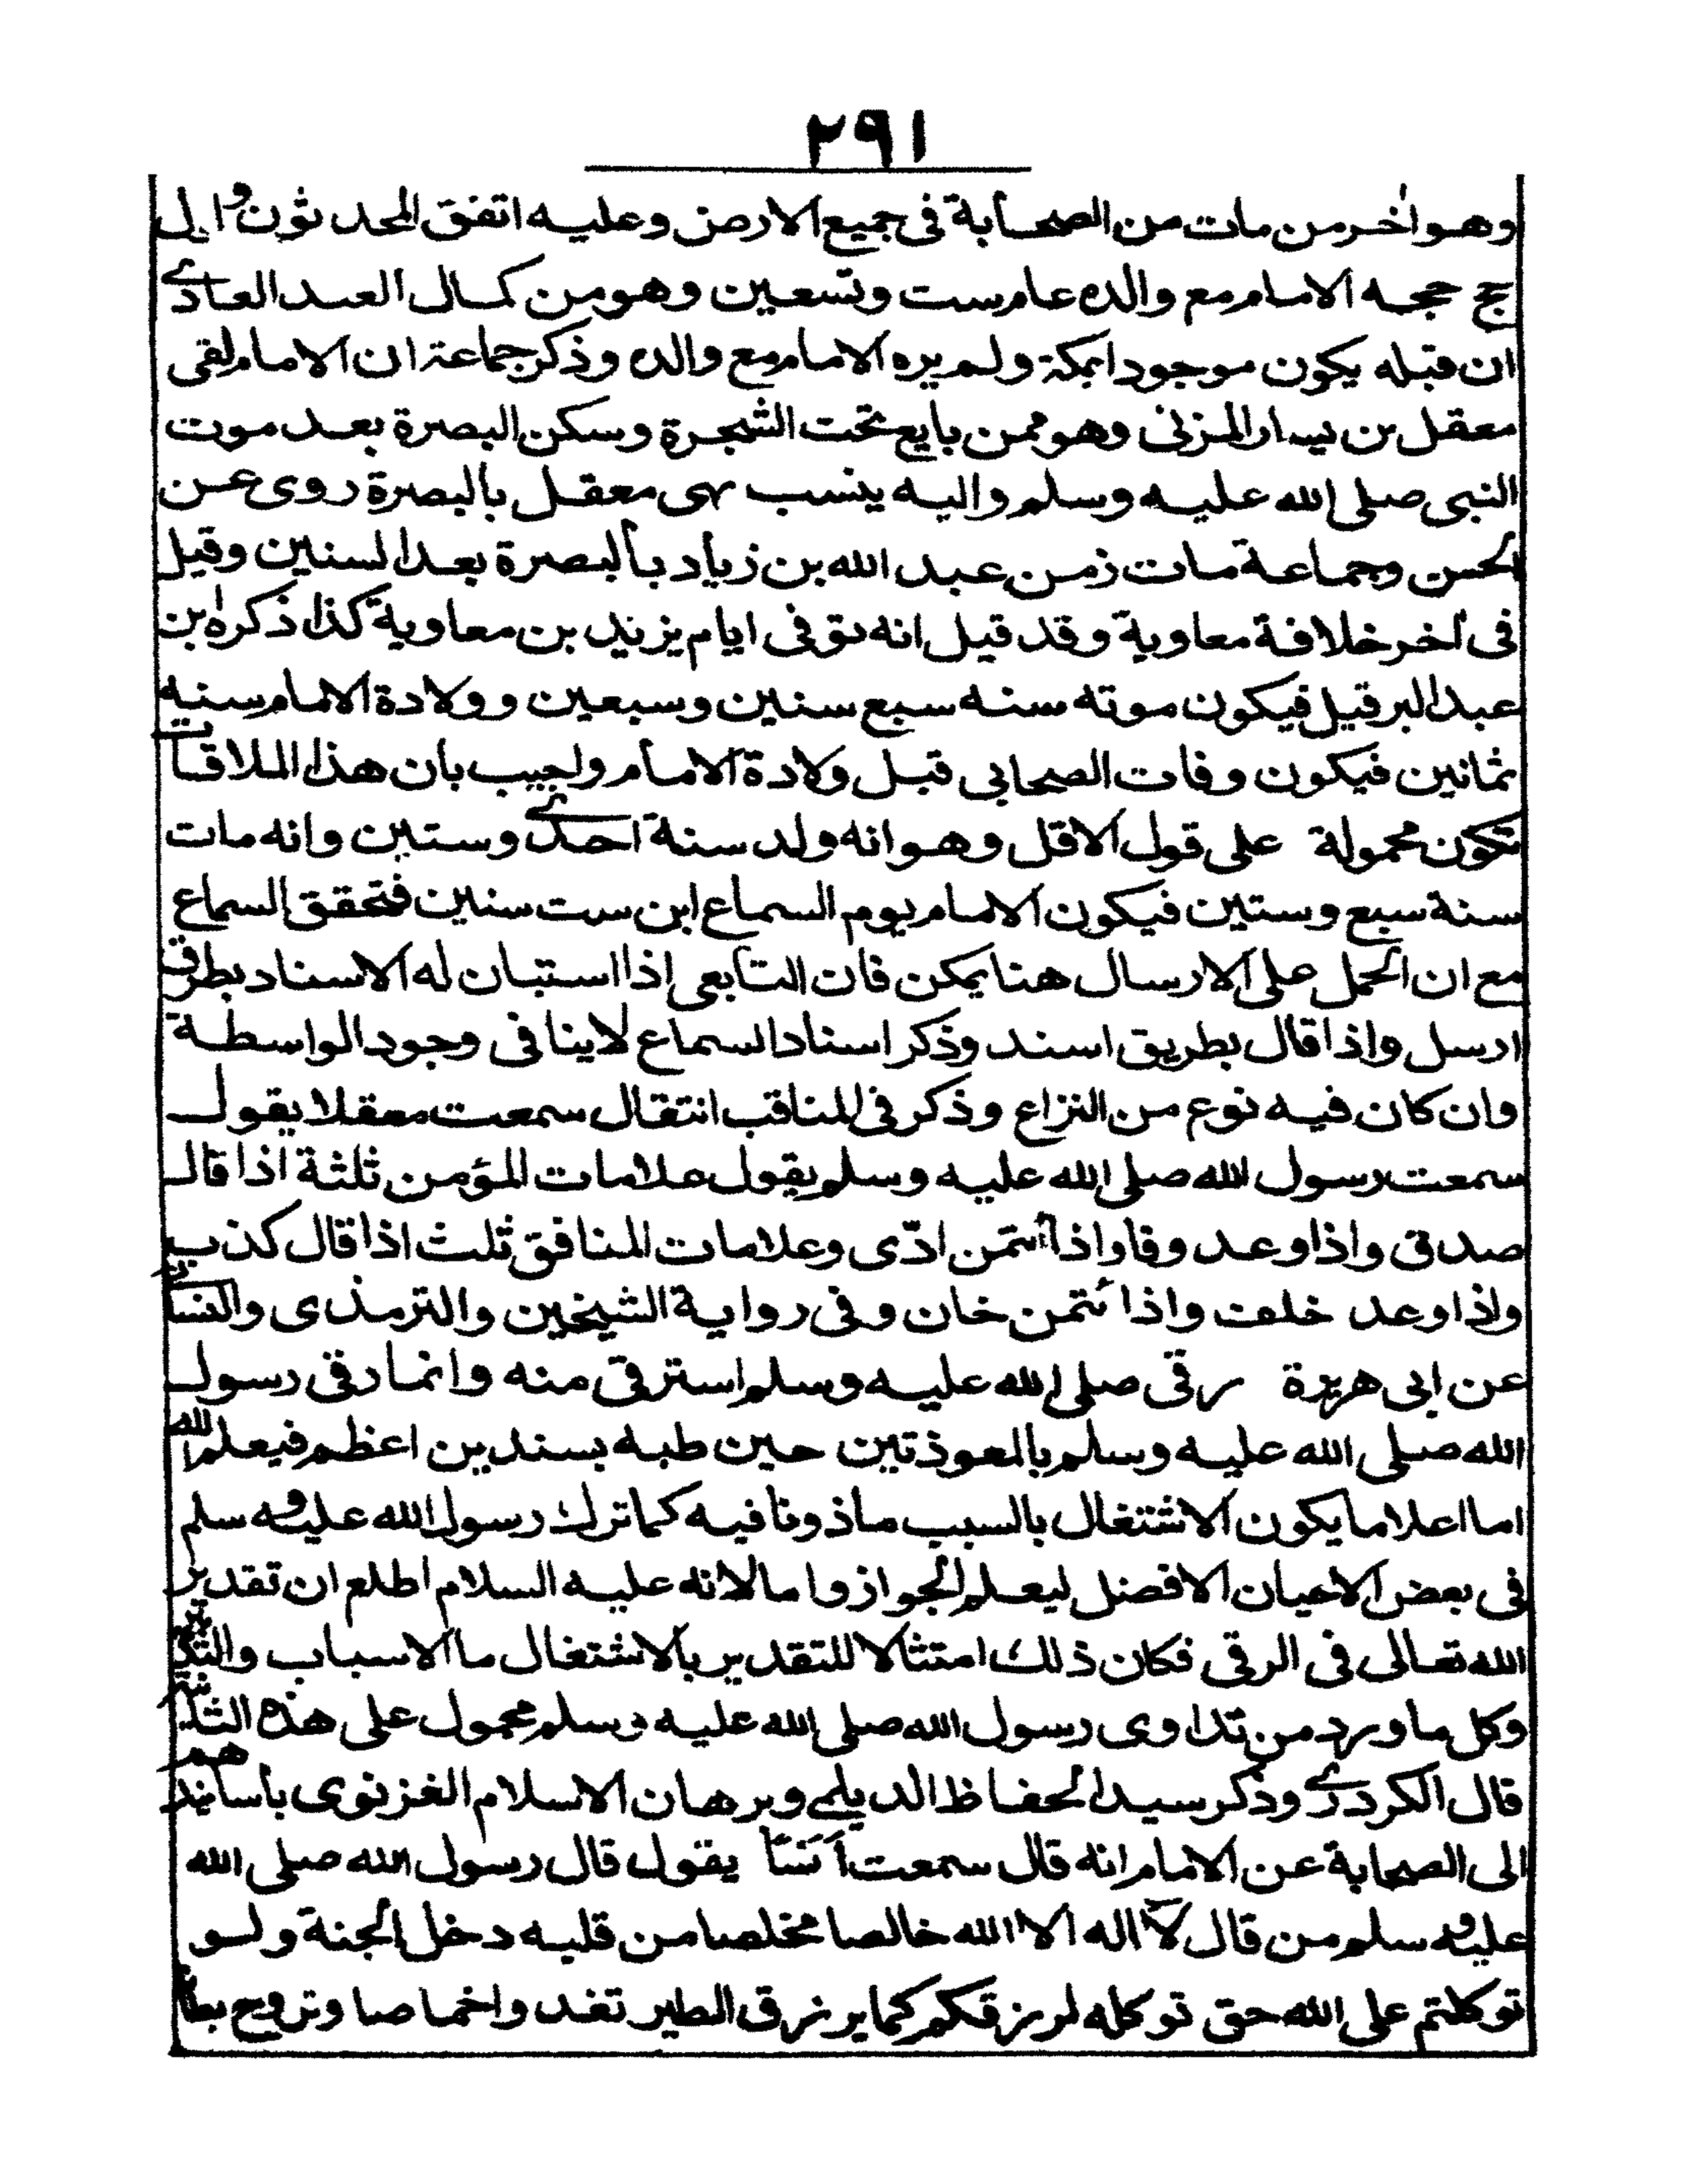 ٢٩١
وهو اٰخر من مات من الصحابة فى جميع الارض وعليه اتفق المحدثون واول
حج حجه الامام مع والده عام ست وتسعين وهو من كمال العبد العادى
ان قبله يكون موجودا بمكة ولم يره الامام مع والده وذكر جماعة ان الامام لقى
معقل بن يسار المزنى وهو ممن بايع تحت الشجرة وسكن البصرة بعد موت
النبى صلى الله عليه وسلم واليه ينسب نهى معقل بالبصرة روى عن
الحسن وجماعة مات زمن عبد الله بن زياد بالبصرة بعد السنين وقيل
فى اٰخر خلافة معاوية وقد قيل انه توفى ايام يزيد بن معاوية كذا ذكره ابن
عبد البر قيل فيكون موته سنه سبع سنين وسبعين وولادة الامام سنه
ثمانين فيكون وفات الصحابى قبل ولادة الامام واجيب بان هذا الملاقات
تكون محمولة على قول الاقل وهو انه ولد سنة احدى وستين وانه مات
سنة سبع وستين فيكون الامام يوم السماع ابن ست سنين فتحقق السماع
مع ان الحمل على الارسال هنا يمكن فان التابعى اذا استبان له الاسناد بطرق
ارسل واذا قال بطريق اسند وذكر اسناد السماع لاينافى وجود الواسطة
وان كان فيه نوع من النزاع وذكر فى المناقب انتقال سمعت معقلا يقول
سمعت رسول الله صلى الله عليه وسلم يقول علامات المؤمن ثلثة اذا قال
صدق واذا وعد وفا واذا أتمن ادّى وعلامات المنافق ثلث اذا قال كذب
واذا وعد خلف واذا ئتمن خان وفى رواية الشيخين والترمذى والنسائى
عن ابى هريرة رقى صلى الله عليه وسلم استرقى منه وانما رقى رسول
الله صلى الله عليه وسلم بالمعوذتين حين طبه بسندين اعظم فيعلم الله
اما اعلاما يكون الاشتغال بالسبب ماذونا فيه كما ترك رسول الله عليه وسلم
فى بعض الاحيان الافضل ليعلم الجواز واما لانه عليه السلام اطلع ان تقدير
الله تعالى فى الرقى فكان ذلك امتثالا للتقدير بالاشتغال ما الاسباب والتدبير
وكل ما ورد من تداوى رسول الله صلى الله عليه وسلم محمول على هذه
قال الكردرى وذكر سيد الحفاظ الديلمى وبرهان الاسلام الغزنوى باسانيدهم
الى الصحابة عن الامام انه قال سمعت أَنَسًا يقول قال رسول الله صلى الله
عليه وسلم من قال لآ اله الا الله خالصا مخلصا من قلبه دخل الجنة ولو
توكلتم على الله حق توكله لرزقكم كما يرزق الطير تغدوا خماصا وتروح بطانا